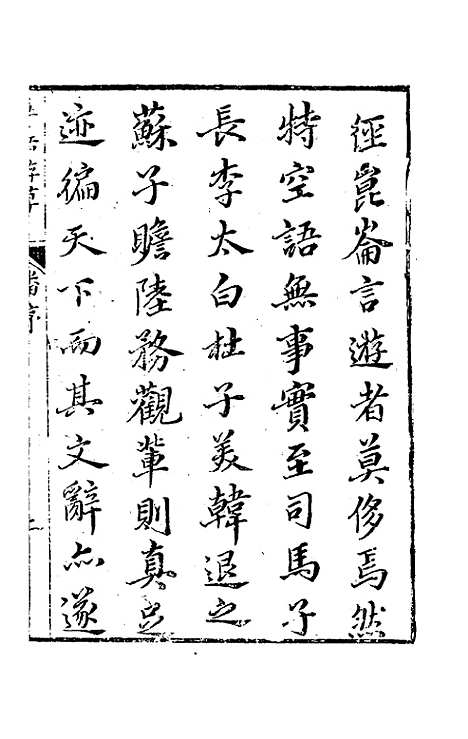 徑崑崙言遊者莫侈焉然
特空語無事實至司馬子
長李太白杜子美韓退之
蘇子瞻陸務觀輩則真足
迹徧天下而其文辭亦遂